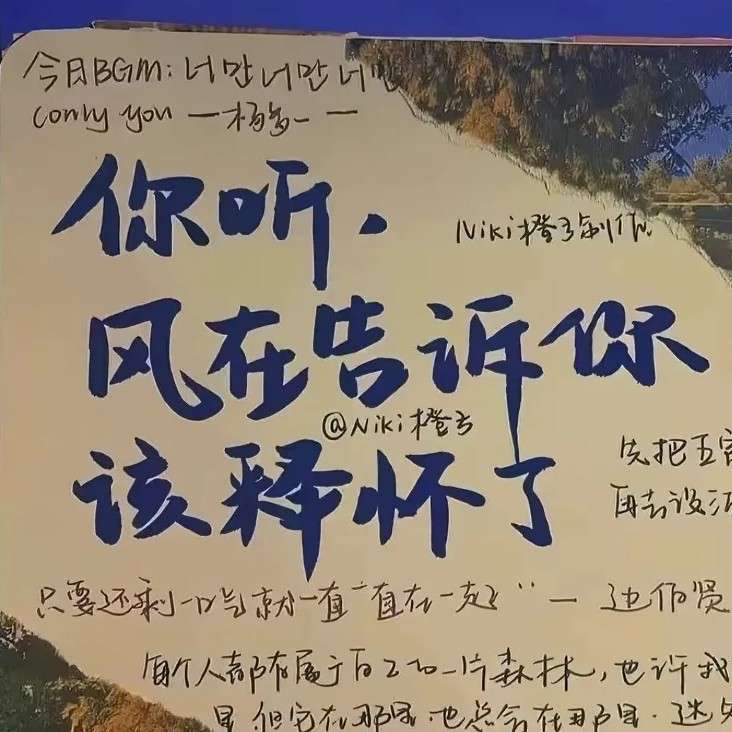 今日BGM:너만 너만 너만
(only you 一杨多一 一
你听.
Niki橙子制作
风在告诉你
@Niki橙子
该释怀了
先把五官
再去设
只要还剩一口气就一直“直在一起” — 边伯贤
每个人都有属于自己的一片森林,也许我
是 但它在那里.也总会在那里.迷失